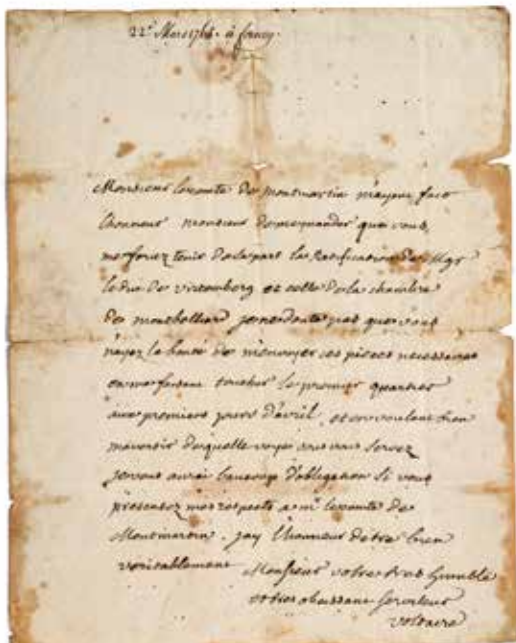 22e Mars 1765. à ferney.
Monsieur lecomte de montmartin m'ayant fait
lhonneur monsieur de me mander que vous
me feriez tenir de sa part la Ratification de Mgr
le duc de virtemberg et celle de la chambre
de montbelliard je ne doute pas que vous
n'ayez la bonté de m'envoyer ces pieces necessaires
en me fesant toucher le premier quartier
aux premiers jours d'avril, et en voulant bien
mavertir de quelle voye vous vous servez
je vous aurai beaucoup d'obligation si vous
présentez mes respects a mr lecomte de
Montmartin. jay lhonneur detre bien
veritablement Monsieur votre tres humble
et tres obeissant serviteur
voltaire